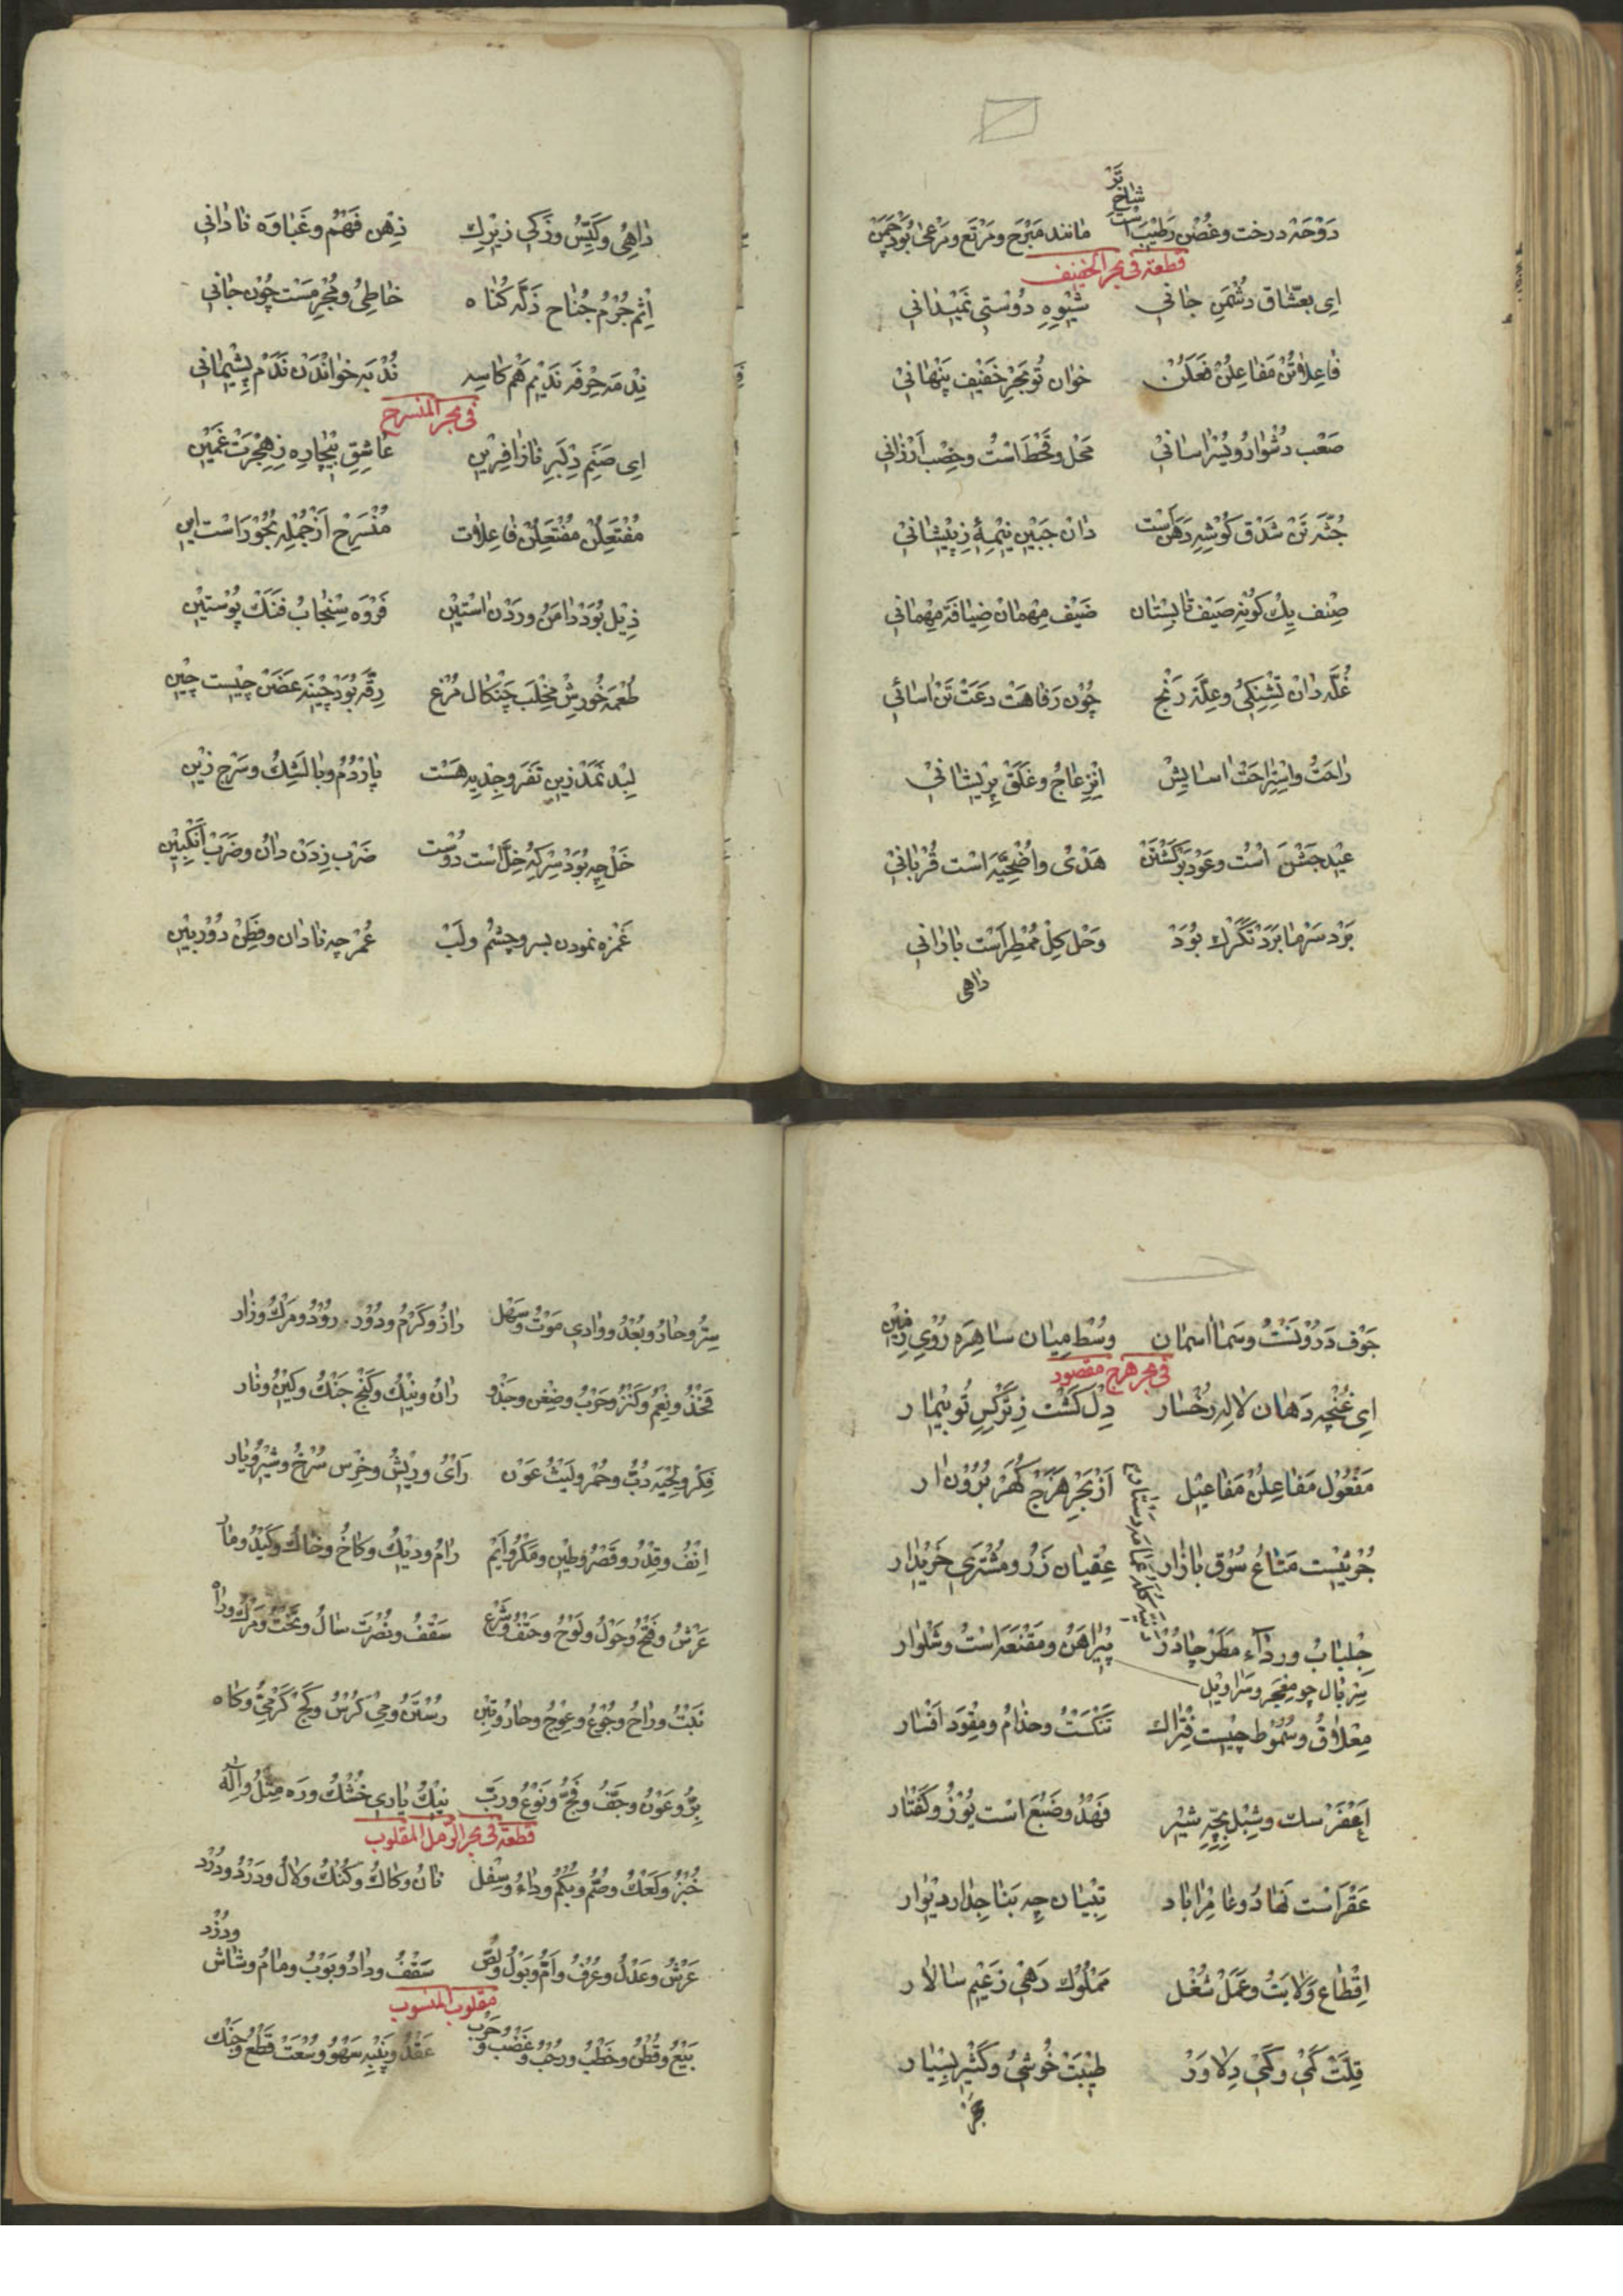 بَرْ
شاخ
دَوْحَهْ درخت وغُصْن رَطِيْب است مانند مَبْرَح ومَرْتَع ومَرْعىٰ بُوَدْ چَمَنْ
قطعة فى بحر الخفيف
اى بعشّاق دشْمَنِ جانى شيْوهِ دُوستى نَميدانى
فاعِلاتُنْ مَفاعِلُنْ فعَلَنْ خوان تُو بَحْرِ خَفيف پَنْهانى
صَعْب دُشْوارُ ويُسْر اسانى مَحْل وقَحْط اسْتُ وخِصْب اَرْزانى
جُثَّه تَنْ شَدْق كُوشِهِ دَهَنَ اسْت دانْ جَبين نيْمِهٔ زِپيْشانى
صِنِف يِكْ كُونِهْ صَيْف تابِستان ضَيْف مِهْمانْ ضِيافَهْ مِهْمانى
غُلَّه دانْ تِشْنِكىُ وعِلَّهْ رَنْج چُون رَفاهَتْ دَعَتْ تَنْ اسائى
راحَتُ واسْتِراحَتْ اسايِشْ اِنْزِعاجُ وغَلَقْ پِريْشانى
عيْد جَشْنَ اسْت وعَوْد بَرْكَشْتَنْ هَدْىُ واُضْحِيَّه اسْت قُرْبانى
بَرْد سَرْما بَرَدْ تَكَرْك بُوَدْ وَحَل كِلْ مُمْطِر اَسْت بارانى
داهى
داهِىُ وكَيِّسُ وزَكى زيْرِك ذِهن فَهْمُ وغَباوَه نادانى
اِثْم جُرْمُ جُناح ذَلّه كُناه خاطِىُ ومُجْرِم سَت چُون جانى
نِدْمَه حِرْفَه نَديْم هَم كاسِه نُدْبَه خوانْدَنْ نَدَمْ پِشيْمانى
فى بحر المنسرح
اى صَنَمِ دِلْبَرِ نازافِرين عاشِقِ بيْچاره زِهِجْرَتْ غَميْن
مُفْتَعِلُنْ مُفْتَعِلُنْ فاعِلات مُنْسَرِحْ اَزْ جُمْلِهِ بُحُورْ اسْت اين
ذِيْل بُوَدْ دامَنُ ورَدْن اسْتيْن فَرْوَه سِنْجابُ فَنَكْ پُوسْتيْن
طُعْمَه خُورِشْ مِخْلَبَ چَنْكال مُرْغ رِقّه بُوَدْ چينَه عَضَنْ چيْست چيْن
لِبْد نَمَدْ زين ثَفَر وجِدْيه هَسْت پارْدُمُ وبالَشِكُ وسَرْج زيْن
خَلْ چِه بُوَدْ سِرْكِهْ خِلّ اسْت دُوسْت ضَرْب زِدَنْ دانُ وضَرَبْ اَنْكَبيْن
غَمْزَه نمودن بسر وچشْم ولَبْ غُمْر چه نادان وفَطِنْ دُوربيْن
جَوْف دَرُونَسْتُ وسَما اسمان وسُطْ مِيان ساهِرَه رُوىِ زمين
فى بحر هزج مقصود
اى غُنْچه دَهان لاله رخُسار دِلْ كَشْت زِنَرْكسِ تُو بيْمار
مَفْعُول مَفاعِلُنْ مَفاعيْل اَزْ بَحْرِ هَزَجْ كُهَرْ بُرُون ار
جُزْ نيْسْت مَتاعُ سُوْق بازار عِقْيان زَرُ ومُشْتَرى خَرِيْدار
جِلْبابُ ورداء مِطَرْ چادُرْ پيْراهَنُ ومَقْنَعَه اسْتُ وشَلْوار
سِرْبال چو مِعْجَر وسَراويل
مِعْلاقُ وسُمُوط چيْست فِتْراك تَنْكَسْتُ وحِذامُ ومِقْوَد اَفْسار
اَعْفَرْ سك وشِبْل بَچّهِ شيْر فَهْدُ وضَبُع اسْت يُوزُ وكَفْتار
عَقْر اسْت نَهادُ وعامِر اباد تِبْيان چِه بَنا جِدار ديْوار
اِقْطاع وَلايَتُ وعَمَلْ شُغْل مَمْلُوك رَهْى زَعيْم سالار
قِلَّتْ كَمى وكَمىْ دِلاوَرْ طيْبَتْ خُوشىُ وكَثير بِسْيار
سِتْرُ وحارُ وبُعْدُ ووادى مَوْتُ وسَهْل رازُ وكَرْمُ ودُورْ رُودُ ومَرْكُ وزار
فَخْذُ ونِعْمُ وكَنْزُ وحَرْبُ وضِغْن وجَذْو رانُ ونيْكُ وكَنْج جَنْكُ وكيْنُ ونار
فِكْرُ ولِحْيَه دُبُّ وحُمْر وليْثُ عَوْن راىُ ورِيْشُ وخِرْس سُرْخُ وشيْرُ ويار
اِنْفُ وقِدْرُ وقَصْرُ وطيْن ومَكْرُ واَيْم رامُ وديْكُ وكاخُ وخاكُ وكَيْدُ ومار
عَرْشُ وفَتْحُ وحَوْلُ ولَوْحُ وحَتْفُ وشَرْع سَقْفُ ونُصْرَت سالُ وتَخْتُ ومَرْكُ وراه
نَبْتُ وراحُ وجُوعُ وعِوْجُ وحارُ وتِبْن رُسْتَنُ ومىْ كُرْسُ وكَجْ كَرْمىُ وكاه
بِرُّ وعَوْنُ وجَفُّ وفَجُّ ونَوْعُ ورَبّ نيْكُ يارى خُشْكُ ورَه مِثْلُ وآلِهْ
قطعة فى بحر الرّمل المقلوب
خُبْزُ وكَعْكُ وصُمُّ وبُكْمُ وداءُ وسِفْل نانُ وكاكُ وكُنْكُ ولالُ ودَرْدُ ودُرْد
ودُزْد
عَرْشُ وعَدْلُ وعُرْفُ واُمُّ وبَوْلُ ولِصّ سَقْفُ ودادُ وبَوْبُ ومامُ وشاش
مقلوب المنسوب
بَيْعُ وقُطْنُ وخَطْبُ ورُحْبُ وغَضْبُ وحَرْب عَقْدُ وپَنْبِه سَهْوُ وسُعَتْ قَطْعُ وجَنْك